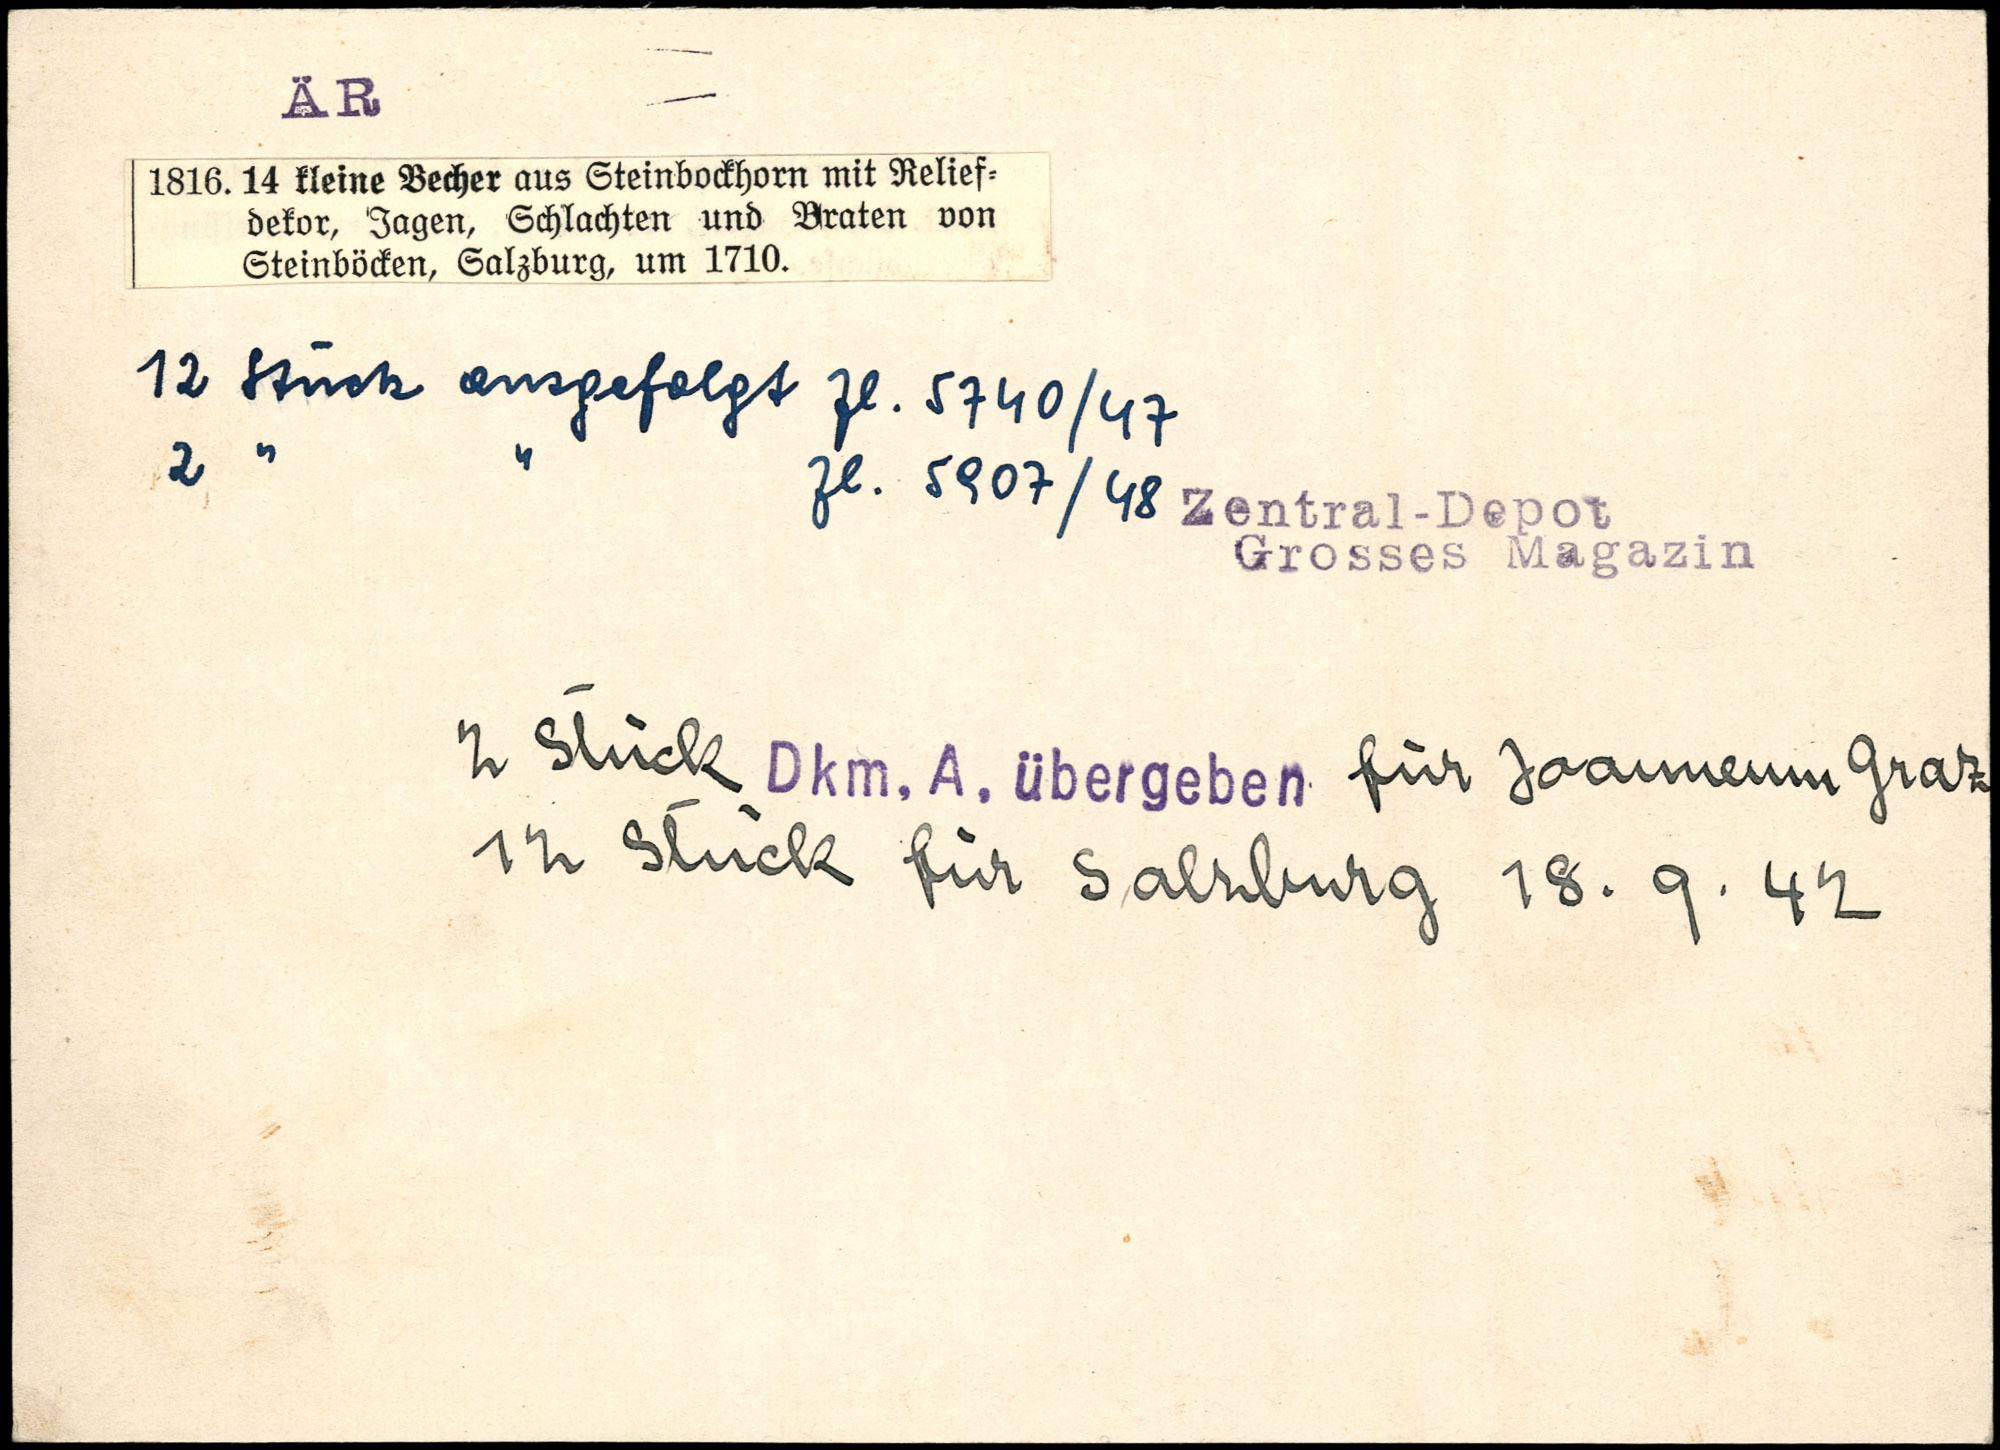 ÄR
1816. 14 kleine Becher aus Steinbockhorn mit Relief-
dekor, Jagen, Schlachten und Braten von
Steinböcken, Salzburg, um 1710.
12 Stück ausgefolgt Zl. 5740/47
2 " " Zl. 5907/48
Zentral-Depot
Grosses Magazin
2 Stück Dkm. A. übergeben für Joanneum Graz
12 Stück für Salzburg 18. 9. 42